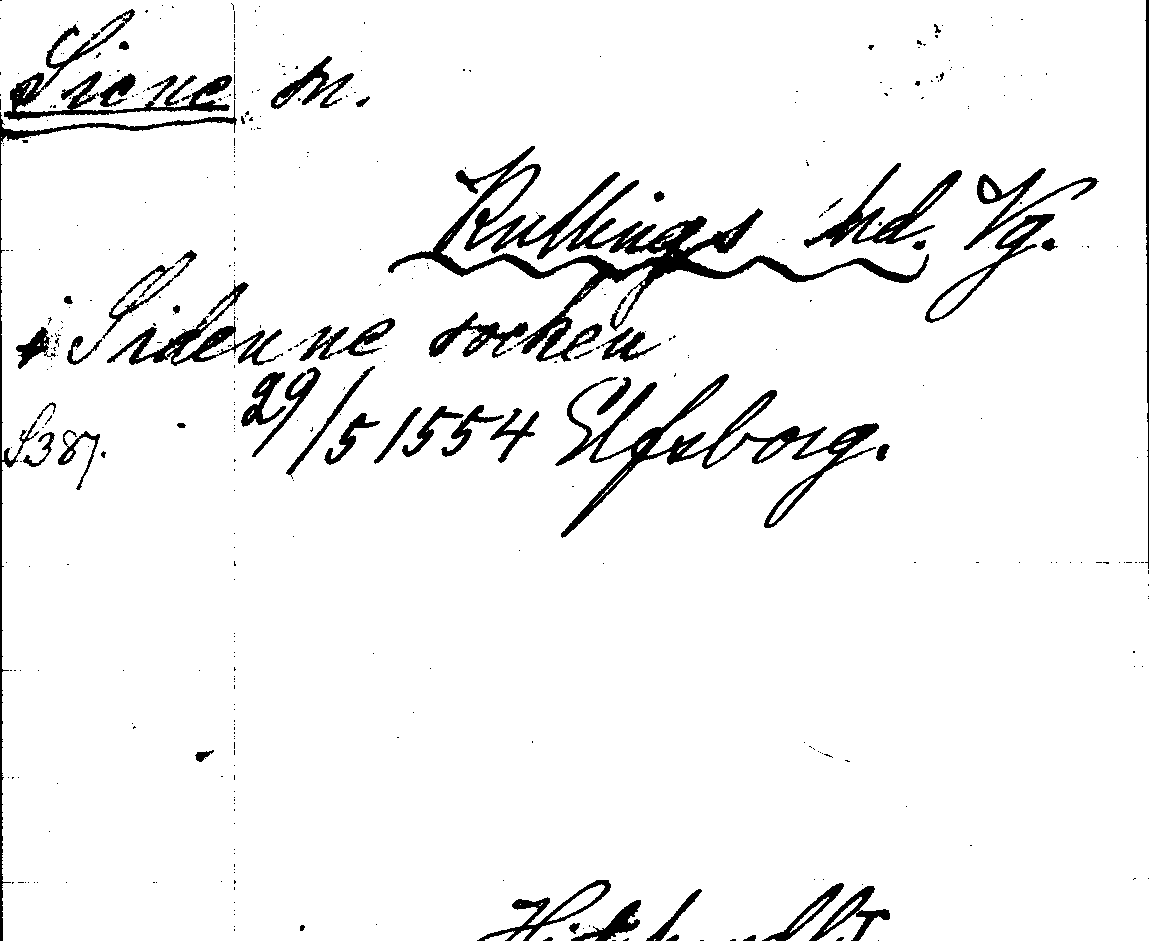 Siene sn.
Kullings hd. Vg.
+ Sidenne socken
S387. 29/5 1554 Elfsborg.